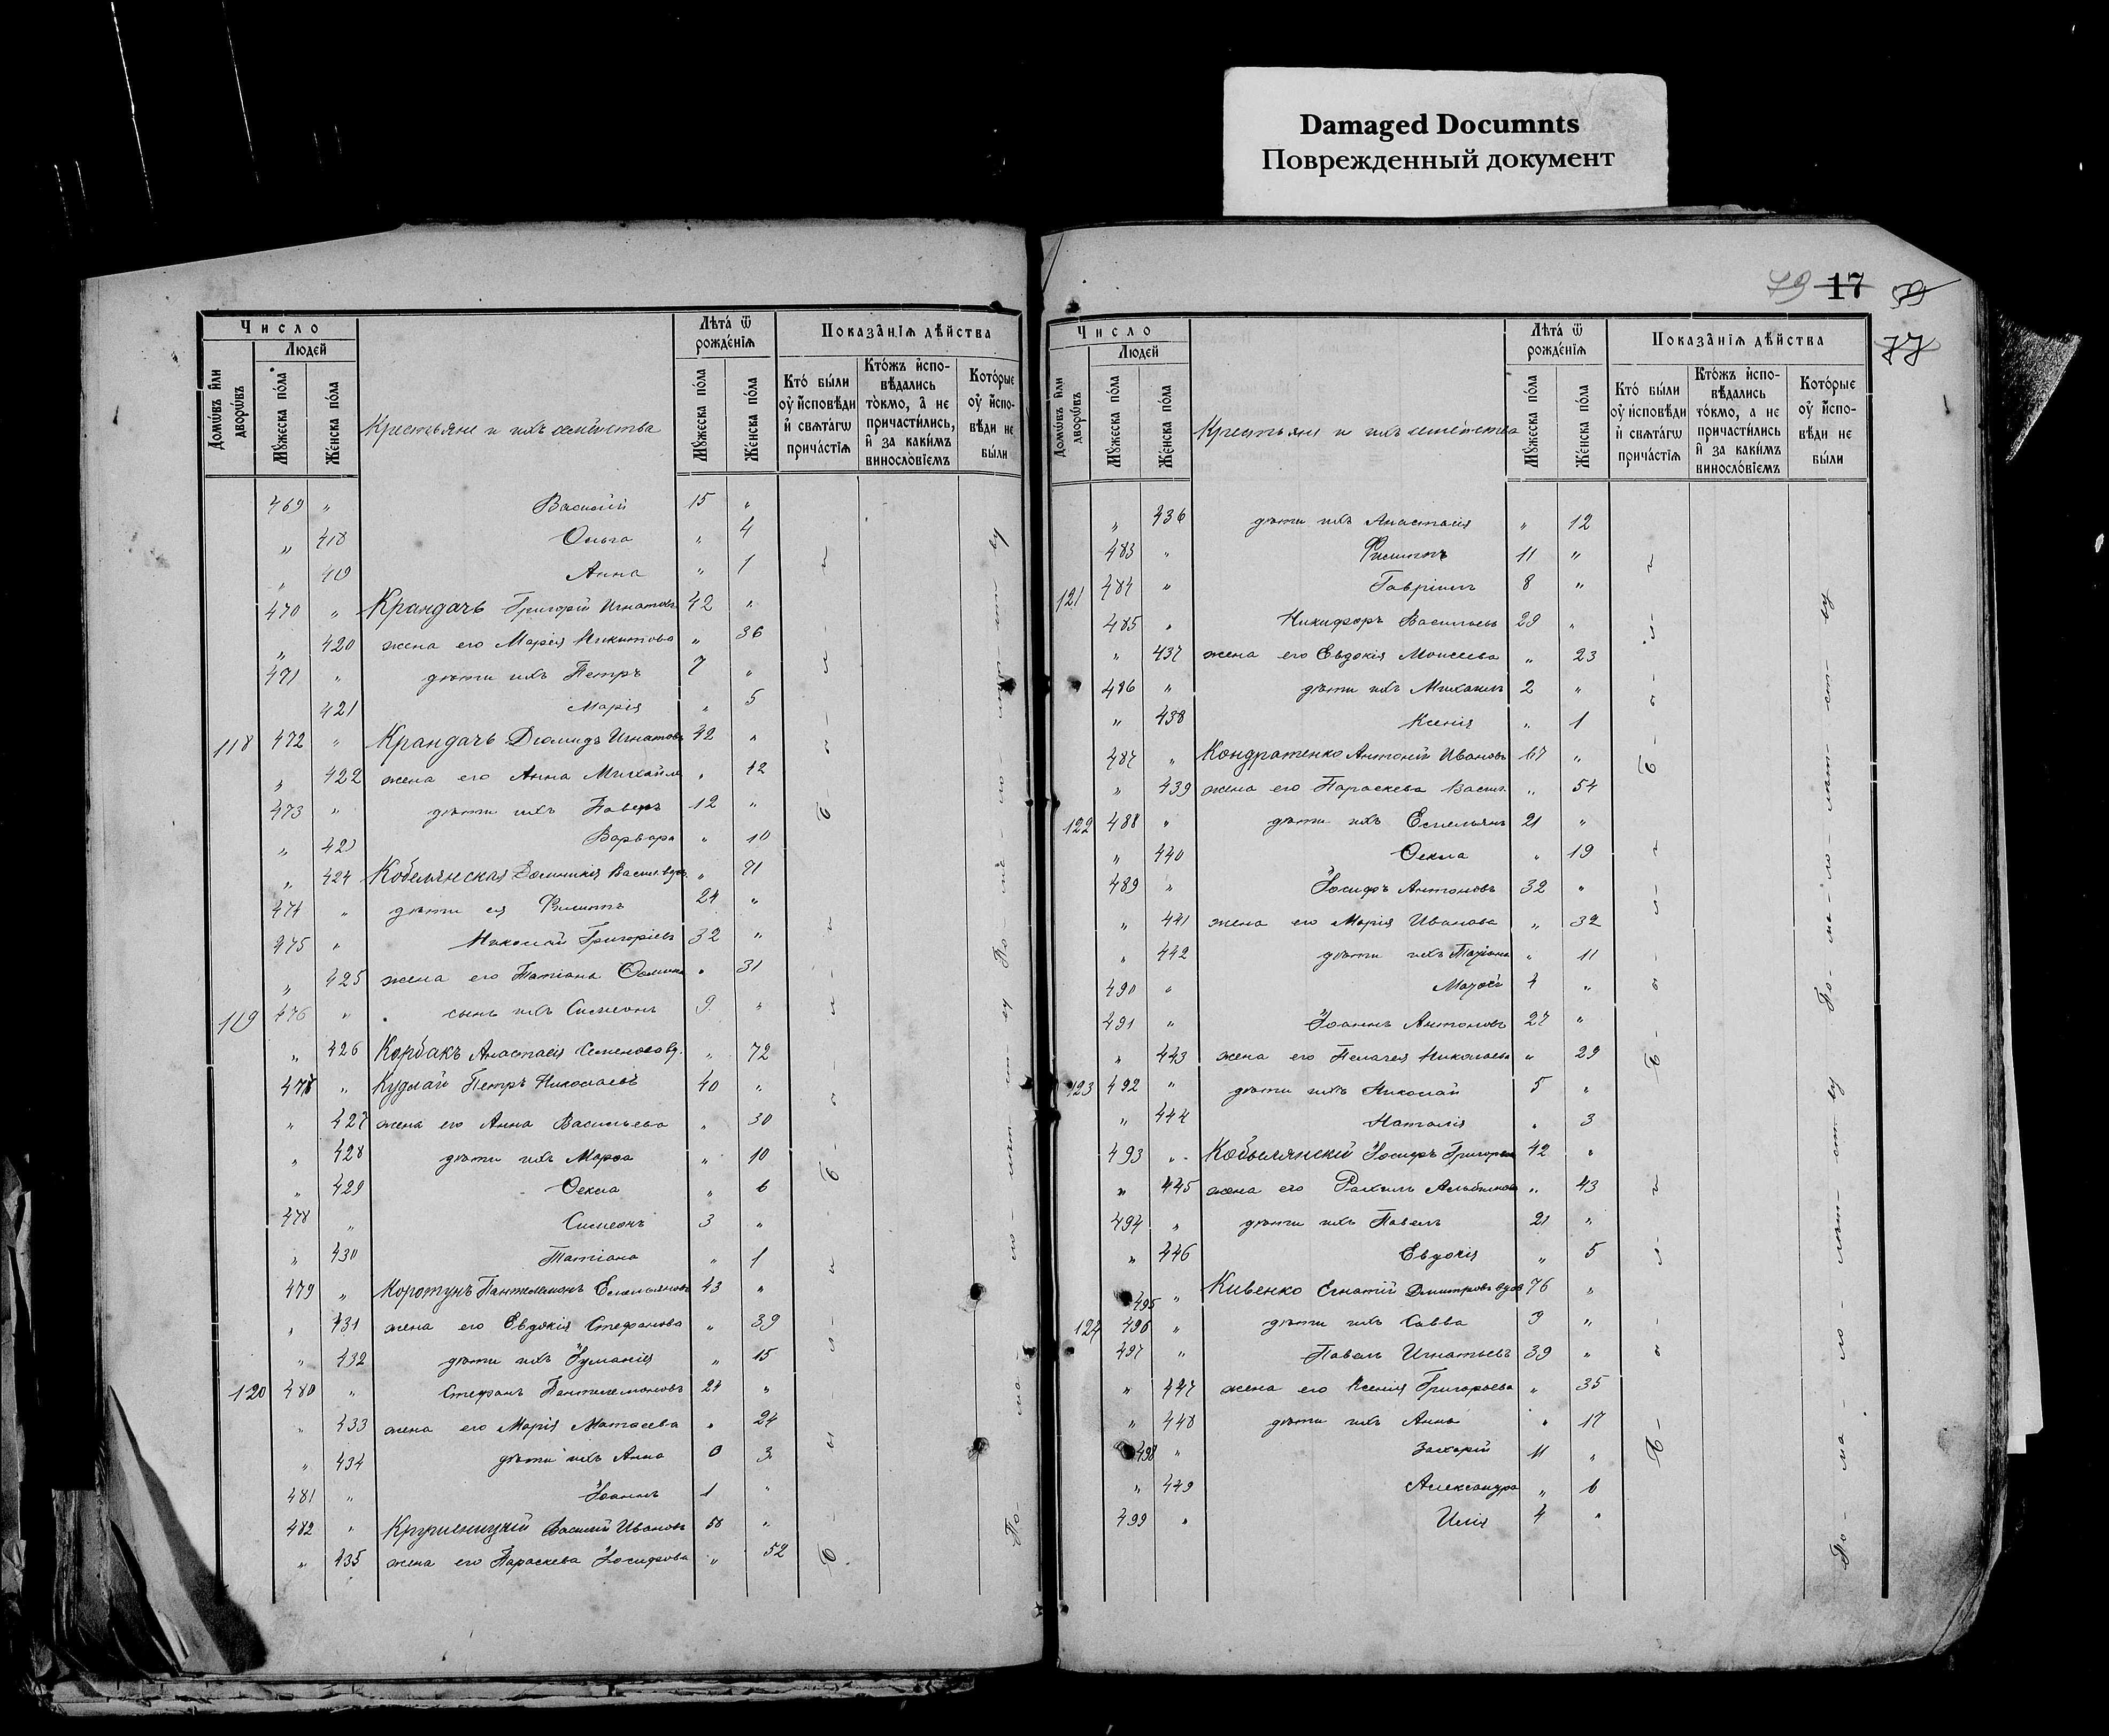 Damaged Documnts
Поврежденный документ
Число
Людей
Домѡвъ и҆лѝ дворѡвъ
Мꙋжеска по́ла
Же́нска по́ла
Крестьяне и ихъ семейства
Лѣта̀ ѿ рожде́нїѧ
Мꙋжеска по́ла
Же́нска по́ла
Показа̑нїѧ дѣ́йства
Кто̀ бы́ли ᲂу҆ и҆сповѣди и҆ свѧта́гѡ прича́стїѧ
Кто́жъ и҆спо-вѣдались то́кмо, а҆ не причасти́лись, и҆ за каки́мъ виносло́вїемъ
Кото́рые ᲂу҆ и҆спо-вѣди не бы́ли
469 " Василій 15 "
" 418 Ольга " 4
" 419 Анна " 1
470 " Крандачь Григорій Игнатовъ 42 "
" 420 жена его Марія Никитова " 36
471 " дѣти ихъ Петръ 7 "
421 Марія " 5
118 472 " Крандачь Діомидъ Игнатовъ 42 "
" 422 жена его Анна Михайл. " 42
473 " дѣти ихъ Павелъ 12 "
" 423 Варвара " 10
" 424 Кобелянская Домникія Васил. вдова " 71
474 " дѣти ея Филиппъ 24 "
475 " Николай Григоріевъ 32 "
" 425 жена его Татіана " 31
119 476 " сынъ ихъ Симеонъ 9 "
" 426 Корбакъ Анастасія Семенова вд. " 72
477 " Кудлай Петръ Николаевъ 40 "
" 427 жена его Анна Васильева " 30
" 428 дѣти ихъ Марѳа " 10
" 429 Ѳекла " 6
478 " Симеонъ 3 "
" 430 Татіана " 1
479 " Коротунъ Пантелемонъ Емельяновъ 43 "
" 431 жена его Евдокія Стефанова " 39
" 432 дѣти ихъ Іуліанія " 15
120 480 " Стефанъ Пантелемоновъ 24 "
" 433 жена его Марія Матѳеева " 24
" 434 дѣти ихъ Анна 0 3
481 " Іоаннъ 1 "
482 " Василій Ивановъ 58 "
" 435 жена его Параскева Іосифова " 52
79 17 59
77
Число
Людей
Домѡвъ и҆лѝ дворѡвъ
Мꙋжеска по́ла
Же́нска по́ла
Крестьяне и ихъ семейства
Лѣта̀ ѿ рожде́нїѧ
Мꙋжеска по́ла
Же́нска по́ла
Показа̑нїѧ дѣ́йства
Кто̀ бы́ли ᲂу҆ и҆сповѣди и҆ свѧта́гѡ прича́стїѧ
Кто́жъ и҆спо-вѣдались то́кмо, а не причасти́лись и҆ за каки́мъ виносло́вїемъ
Кото́рые ᲂу҆ и҆спо-вѣди не бы́ли
" 436 дѣти ихъ Анастасія " 12
483 " Филиппъ 11 "
121 484 " Гавріилъ 8 "
485 " Никифоръ Васильевъ 29 "
" 437 жена его Евдокія Моисеева " 23
486 " дѣти ихъ Михаилъ 2 "
" 438 Ксенія " 1
487 " Кондратенко Антоній Ивановъ 67 "
" 439 жена его Параскева Васил. " 54
122 488 " дѣти ихъ Емельянъ 21 "
" 440 Ѳекла " 19
489 " Іосифъ Антоновъ 32 "
" 441 жена его Марія Иванова " 32
" 442 дѣти ихъ " 11
490 " 4 "
491 " Іоаннъ Антоновъ 27 "
" 443 жена его Пелагея Николаева " 29
123 492 " дѣти ихъ Николай 5 "
" 444 Наталія " 3
493 " Кобылянскій Іосифъ Григорьев 42 "
" 445 жена его Рахиль " 43
494 " дѣти ихъ Павелъ 21 "
" 446 Евдокія " 5
495 " Кивенко Игнатій Дмитровъ вдов 76 "
124 496 " дѣти ихъ Савва 9 "
497 " Павелъ Игнатьевъ 39 "
" 447 жена его Ксенія Григорьева " 35
" 448 дѣти ихъ Анна " 17
498 " Захарій 11 "
" 449 Александра " 6
499 " Илія 4 "